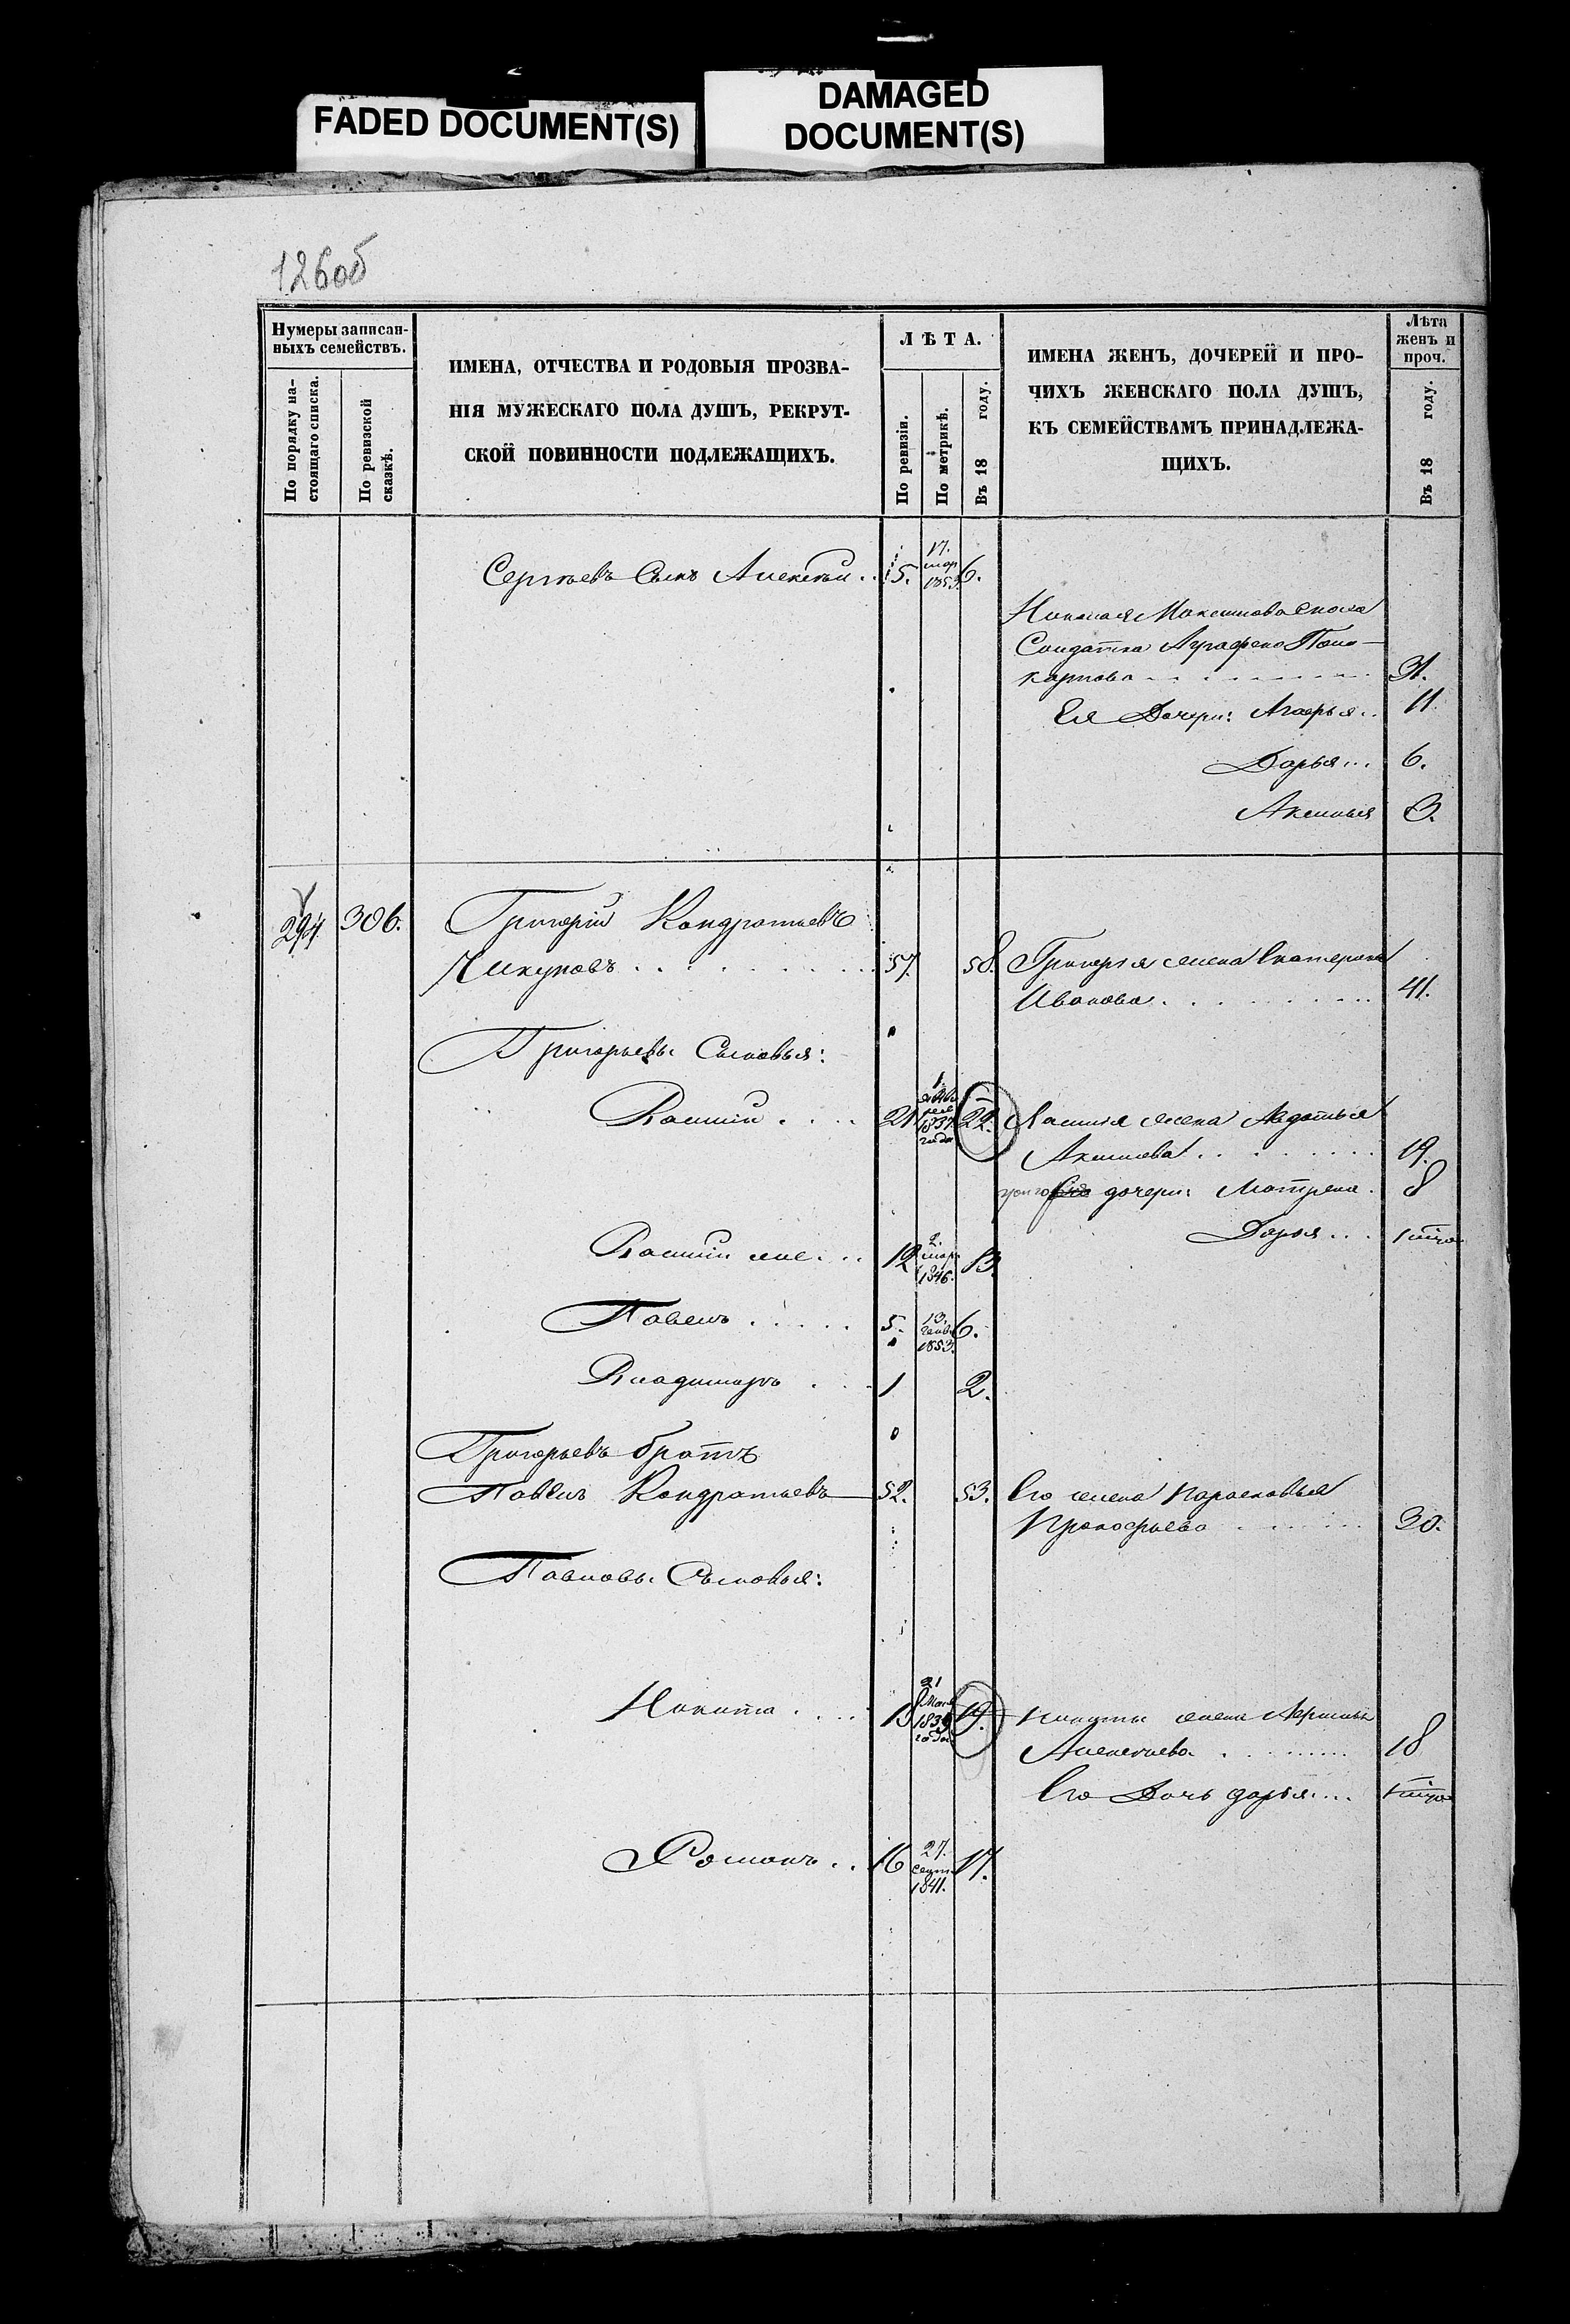 FADED DOCUMENT(S)
DAMAGED
DOCUMENT(S)
126об
Нумеры записан-
ныхъ семействъ.
По порядку на-
стоящаго списка.
По ревизской
сказкѣ.
ИМЕНА, ОТЧЕСТВА И РОДОВЫЯ ПРОЗВА-
НІЯ МУЖЕСКАГО ПОЛА ДУШЪ, РЕКРУТ-
СКОЙ ПОВИННОСТИ ПОДЛЕЖАЩИХЪ.
ЛѢТА.
По ревизіи.
По метрикѣ.
Въ 18 году.
ИМЕНА ЖЕНЪ, ДОЧЕРЕЙ И ПРО-
ЧИХЪ ЖЕНСКАГО ПОЛА ДУШЪ,
КЪ СЕМЕЙСТВАМЪ ПРИНАДЛЕЖА-
ЩИХЪ.
Лѣта
женъ и
проч.
Въ 18 году.
Сергѣевъ Сынъ Алексѣй .. 5. 17. мар 1853. 6.
Николая Максимова сноха
Солдатка Аграфена Поли-
карпова 31.
Ея Дочери: Агафья .. 11.
Дарья ... 6.
Аксинья 3.
294 306. Григорій Кондратьевъ
Чикуновъ 57. 58. Григорья жена Екатерина
Иванова 41.
Григорьевы Сыновья:
Василій .... 21 1 1837 года 22. Василья жена Авдотья
Акимова 19.
дочери: Матрена . 8
Дарья ...
Василій мен. .. 12 2. мар 1846. 13.
Павелъ ..... 5. 13. генв 1853. 6.
Владимиръ . 1 2.
Григорьевъ братъ
Павелъ Кондратьевъ 52. 53. Его жена Парасковья
Прокофьева 30.
Павловы Сыновья:
Никита .... 21 1839 года 19. Никиты жена
Алексѣева 18
Его Дочь Дарья ...
Романъ .. 16 27. сент 1841. 17.